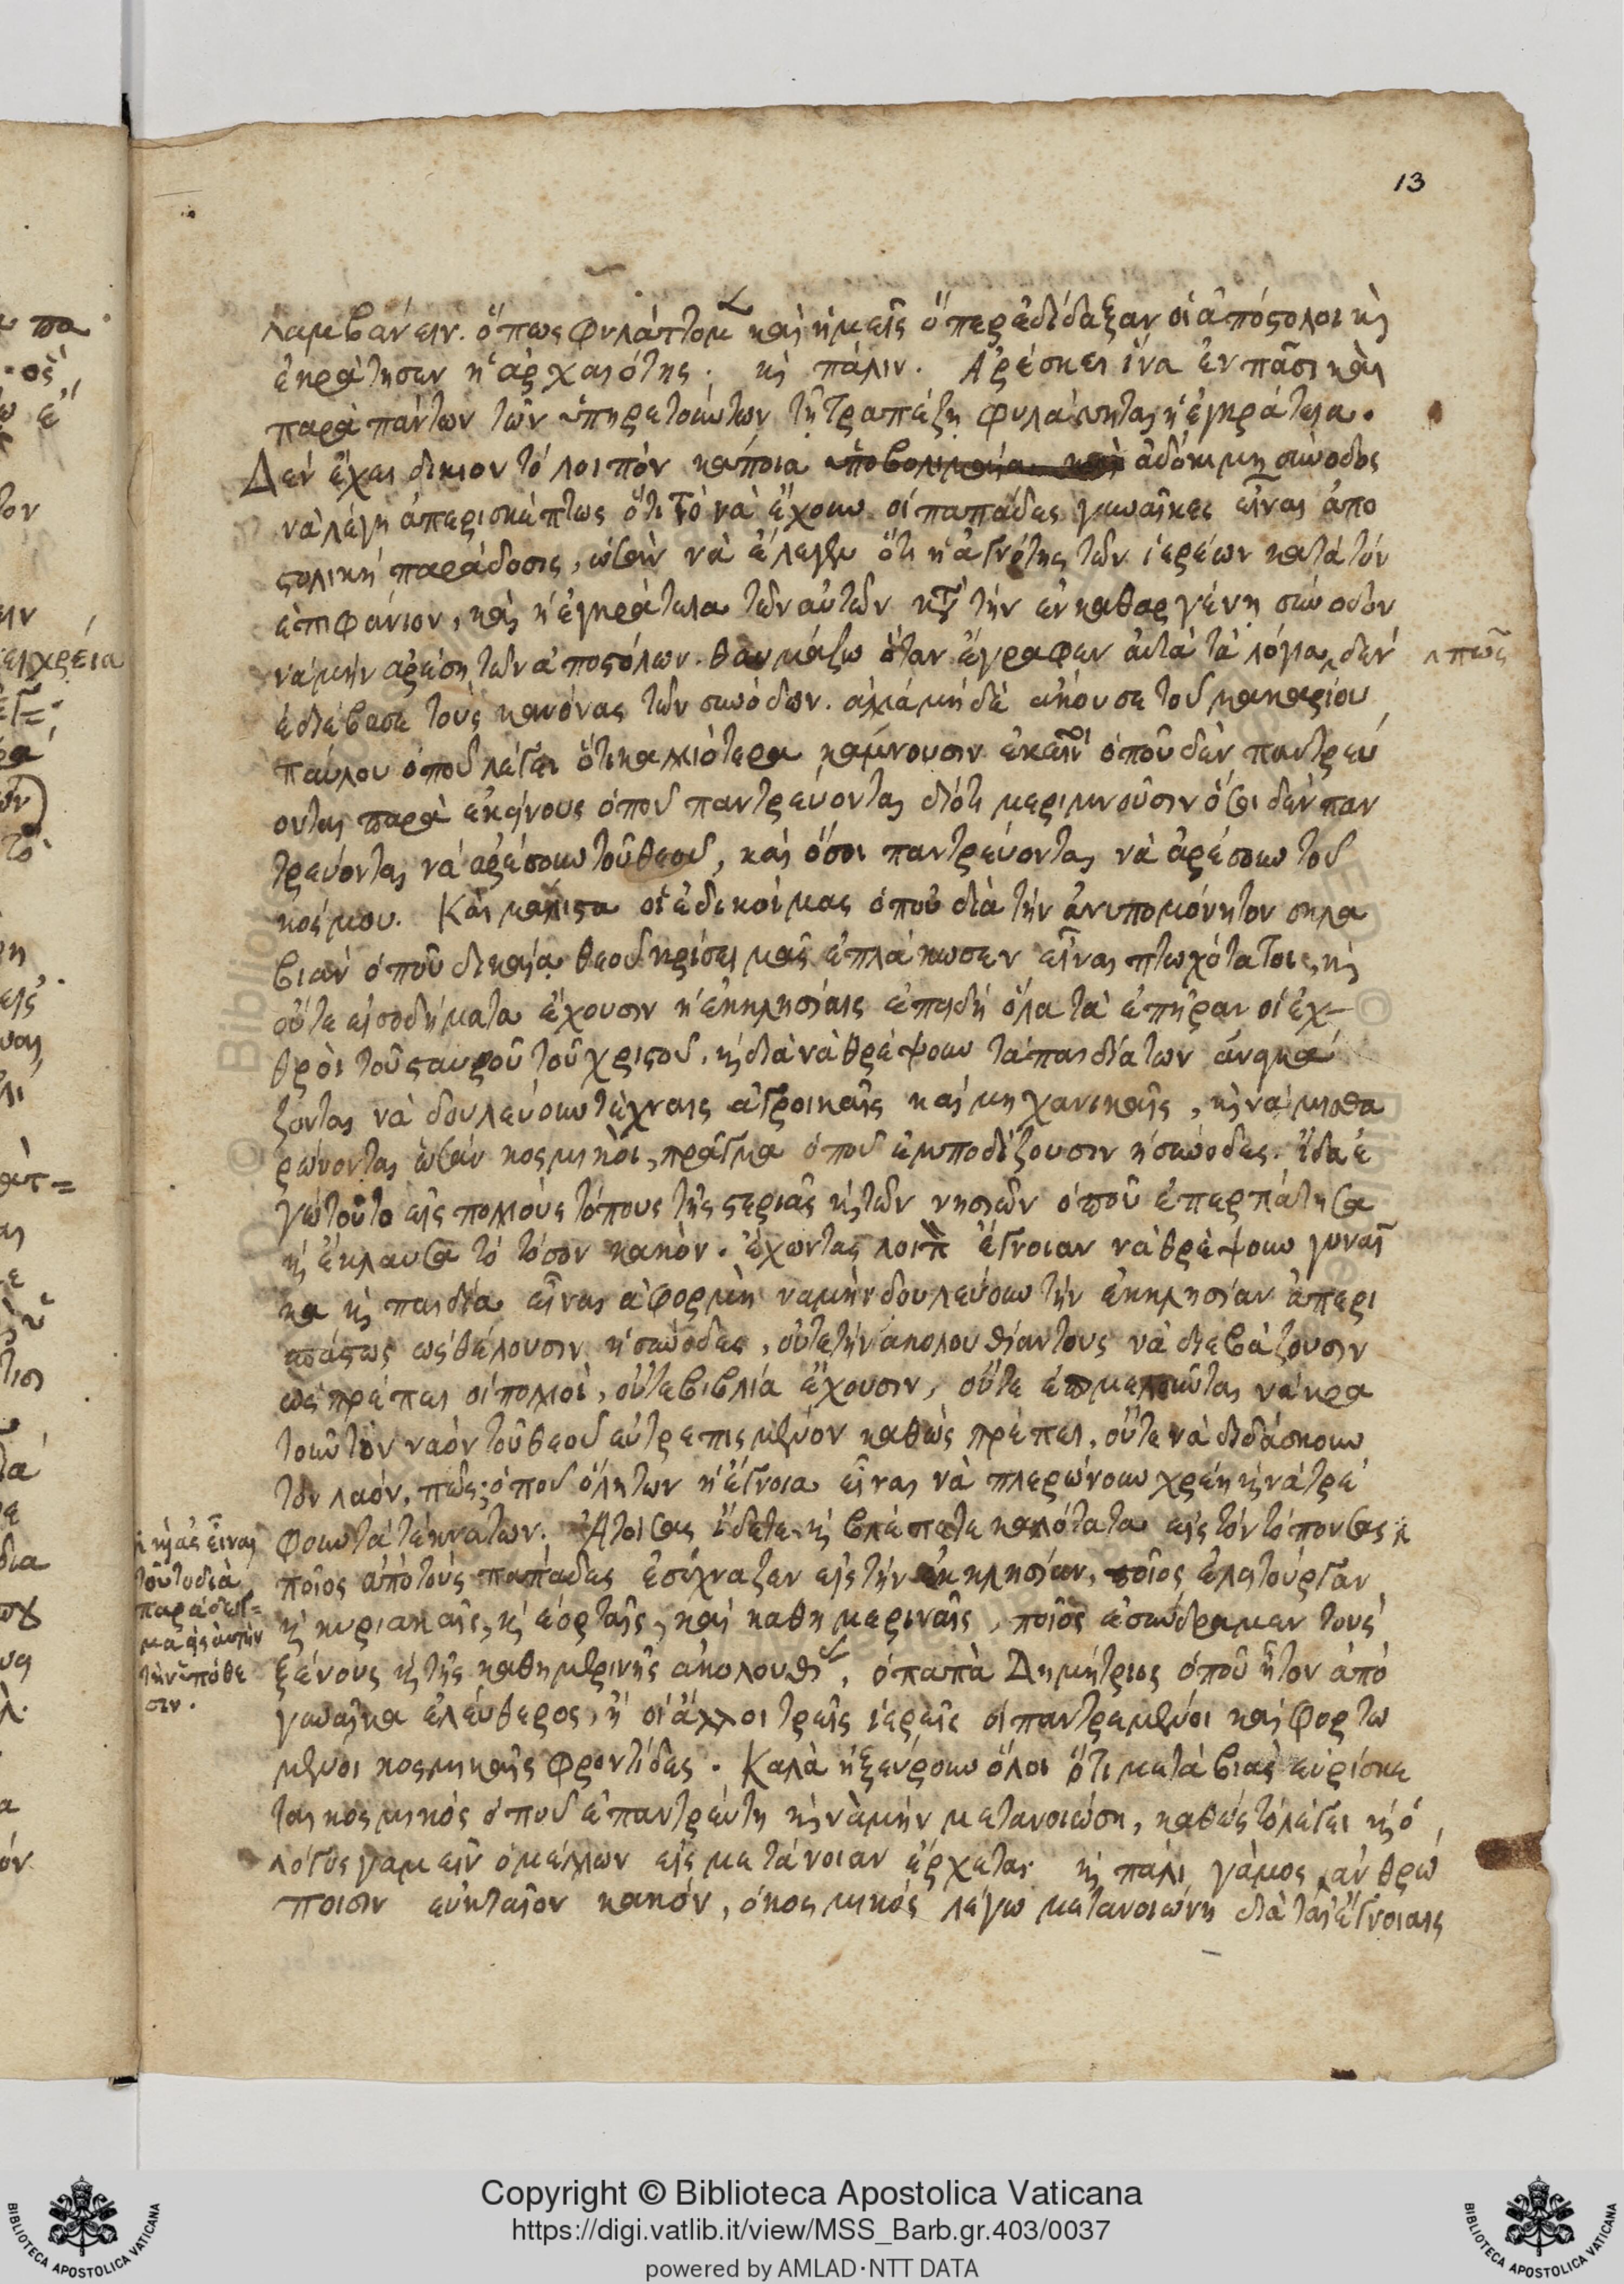 13
λαμβάνειν. ὅπως φυλάττομ καὶ ἡμεῖς ὅπερ ἐδίδαξαν οἱ ἀπόστολοι κὶ
ἐκράτησεν ἡ ἀρχαιότης. κὶ πάλιν. Ἀρέσκει ἵνα ἐν πᾶσι καὶ
παρὰ πάντων τῶν ὑπηρετούντων τῇ τραπέζῃ φυλάττηται ἡ ἐγκράτεια.
Δὲν ἔχει δίκιον τὸ λοιπὸν κάποια ἀδόκιμη σύνοδος
νὰ λέγῃ ἀπερισκέπτως ὅτι τὸ νὰ ἔχουν οἱ παπάδες γυναῖκες εἶναι ἀπο
στολικὴ παράδοσις, ὡσὰν νὰ ἔλεγεν ὅτι ἡ ἁγνότης τῶν ἱερέων κατὰ τὸν
ἐπιφάνιον, καὶ ἡ ἐγκράτεια τῶν αὐτῶν κτ τὴν ἐν καθαργένῃ σύνοδον
νὰ μὴν ἀρέσῃ τῶν ἀποστόλων. θαυμάζω ὅταν ἔγραφεν αὐτὰ τὰ λόγια δὲν
πῶς
ἐδιέβασε τοὺς κανόνας τῶν συνόδων. ἀλλὰ μηδὲ ἄκουσε τοῦ μακαρίου
παύλου ὁποῦ λέγει ὅτι καλλιότερα κάμνουσιν ἐκεῖνοι ὁποῦ δὲν παντρεύ
ονται παρὰ ἐκείνους ὁποῦ παντρεύονται διότι μεριμνοῦσιν ὅσοι δὲν παν
τρεύονται νὰ ἀρέσουν τοῦ θεοῦ, καὶ ὅσοι παντρεύονται νὰ ἀρέσουν τοῦ
κόσμου. Καὶ μάλιστα οἱ ἐδικοί μας ὁποῦ διὰ τὴν ἀνυπομόνητον σκλα
βιὰν ὁποῦ δικαίᾳ θεοῦ κρίσει μᾶς ἐπλάκωσεν εἶναι πτωχότατοι, κὶ
οὔτε εἰσοδήματα ἔχουσιν ἡ ἐκκλησίαις ἐπειδὴ ὅλα τὰ ἐπῆραν οἱ ἐχ-
θροὶ τοῦ σταυροῦ τοῦ χριστοῦ, κὶ διὰ νὰ θρέψουν τὰ παιδία των ἀνγκά
ζονται νὰ δουλεύουν τέχναις ἀγροικαῖς καὶ μηχανικαῖς, κὶ νὰ μισθα
ρώνονται ὡσὰν κοσμικοὶ, πρᾶγμα ὁποῦ ἐμποδίζουσιν ἡ σύνοδες. ἴδα ἐ
γὼ τοῦτο εἰς πολλοὺς τόπους τῆς στεριᾶς κὶ τῶν νησιῶν ὁποῦ ἐπερπάτησα
κὶ ἔκλαυσα τὸ τόσον κακόν. ἔχωντας λοιπ ἔγνοιαν νὰ θρέψουν γυναῖ
κα κὶ παιδία εἶναι ἀφορμὴ νὰ μὴν δουλεύουν τὴν ἐκκλησίαν ἀπερι
σπάστως ὡς θέλουσιν ἡ σύνοδες, οὔτε τὴν ἀκολουθίαν τους νὰ διεβάζουσιν
ὡς πρέπει οἱ πολλοὶ, οὔτε βιβλία ἔχουσιν, οὔτε ἐπιμελοῦνται νὰ κρα
τοῦν τὸν ναὸν τοῦ θεοῦ εὐτρεπισμένον καθὼς πρέπει, οὔτε νὰ διδάσκουν
τὸν λαόν, πῶς; ὁποῦ ὅλη των ἡ ἔγνοια εἶναι νὰ πλερώνουν χρέη κὶ νὰ τρέ
φουν τὰ τέκνα των. Ἀτοί σας ἴδετε κὶ βλέπετε καλότατα εἰς τὸν τόπον σας
κὶ ἂς εἶναι
τοῦτο διὰ
παράδειγ=
μα εἰς αὐτὴν
τὴν ὑπόθε
σιν.
ποῖος ἀπὸ τοὺς παπάδες ἐσύχναζεν εἰς τὴν ἐκκλησίαν, ποῖος ἐλειτούργαν
κὶ κυριακαῖς, κὶ ἑορταῖς, καὶ καθημεριναῖς, ποῖος ἐσύνδραμεν τοὺς
ξένους κὶ τῆς καθημερινῆς ἀκολουθ, ὁ παπὰ Δημήτριος ὁποῦ ἦτον ἀπὸ
γυναῖκα ἐλεύθερος, ἢ οἱ ἄλλοι τρεῖς ἱερεῖς οἱ παντρεμένοι καὶ φορτω
μένοι κοσμικαῖς φροντίδες. Καλὰ ἠξεύρουν ὅλοι ὅτι μετὰ βίας εὑρίσκε
ται κοσμικὸς ὁποῦ ἐπαντρεύτη κὶ νὰ μὴν μετανοιώσῃ, καθὼς τὸ λέγει κὶ ὁ
λόγος γαμεῖν ὁ μέλλων εἰς μετάνοιαν ἔρχεται κὶ πάλι γάμος ἀνθρώ
ποισιν εὐκταῖον κακόν, ὁ κοσμικὸς λέγω μετανοιώνῃ διὰ ταῖς ἔγνοιαις
Copyright © Biblioteca Apostolica Vaticana
https://digi.vatlib.it/view/MSS_Barb.gr.403/0037
powered by AMLAD·NTT DATA
BIBLIOTECA APOSTOLICA VATICANA
BIBLIOTECA APOSTOLICA VATICANA